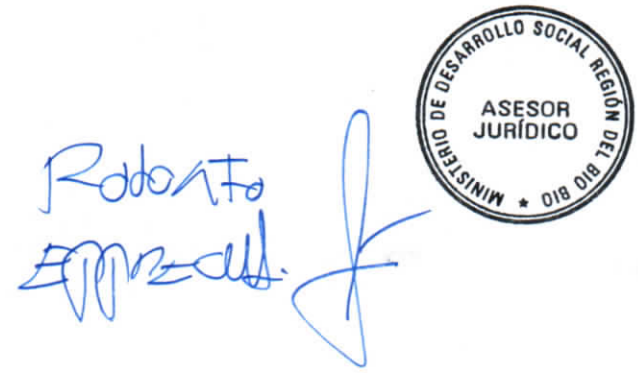 MINISTERIO DE DESARROLLO SOCIAL REGIÓN DEL BIO BIO ★
ASESOR
JURÍDICO
Rodolfo